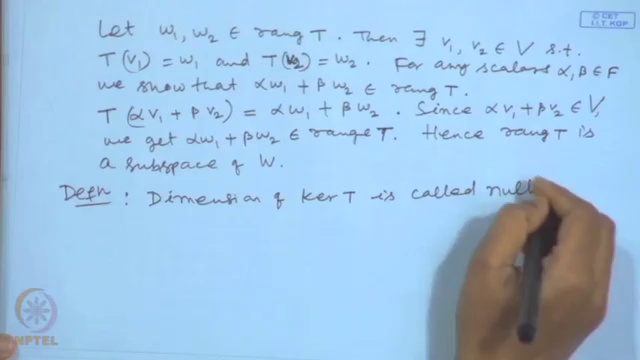 © CET
I.I.T. KGP
Let w₁, w₂ ∈ rang T. Then ∃ v₁, v₂ ∈ V s.t.
T(v₁) = w₁ and T(v₂) = w₂. For any scalars α, β ∈ F
we show that αw₁ + βw₂ ∈ rang T.
T(αv₁ + βv₂) = αw₁ + βw₂. Since αv₁ + βv₂ ∈ V,
we get αw₁ + βw₂ ∈ range T. Hence rang T is
a subspace of W.
Defn: Dimension of ker T is called null
NPTEL